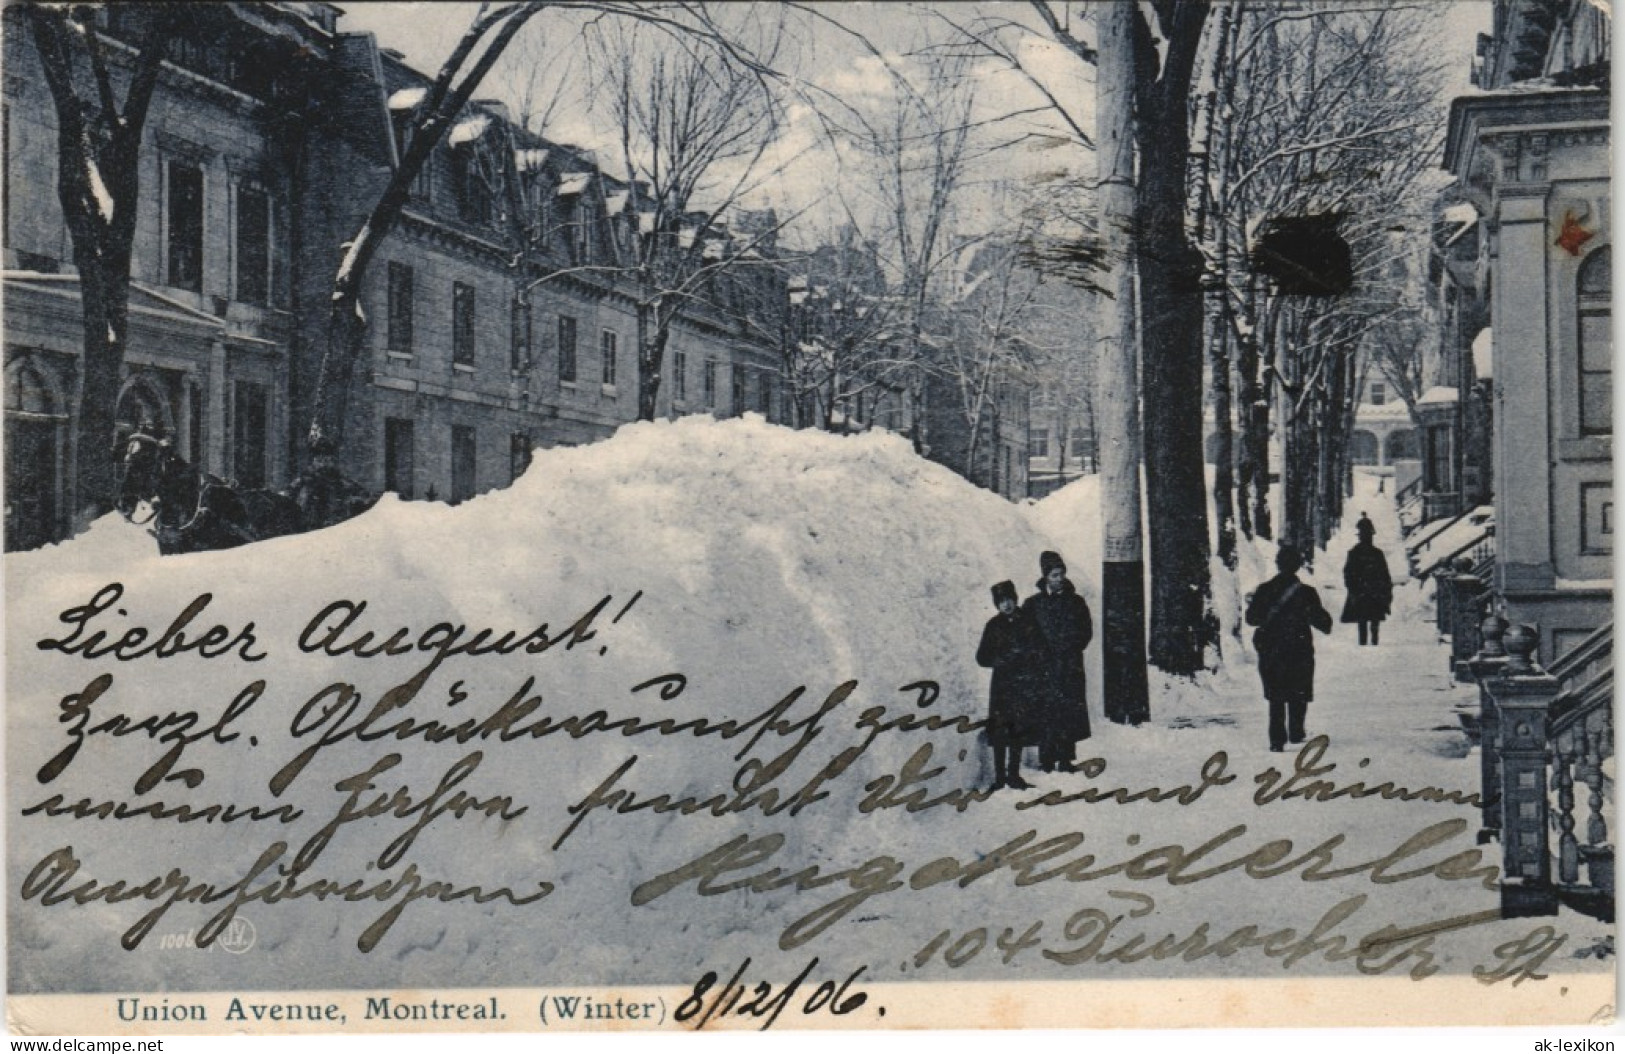 Lieber August!
Herzl. Glückwunsch zum
neuen Jahre sendet Dir und Deinen
Angehörigen Hugo Kiderlen
104 Durocher St.
1006 J.V.
Union Avenue, Montreal. (Winter) 8/12/06.
akpool.com
ak-lexikon